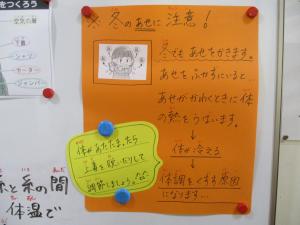 をつくろう
空気の層
下着
シャツ
セーター
ジャンパー
※ 冬のあせに 注意！
冬でもあせをかきます。
あせをふかずにいると
あせがかわくときに体
の熱をうばいます。
↓
体が冷える
↓
体調をくずす原因
になります…
体があたたまったら
上着を脱いだりして
調節しましょう。
糸と糸の間
体温で